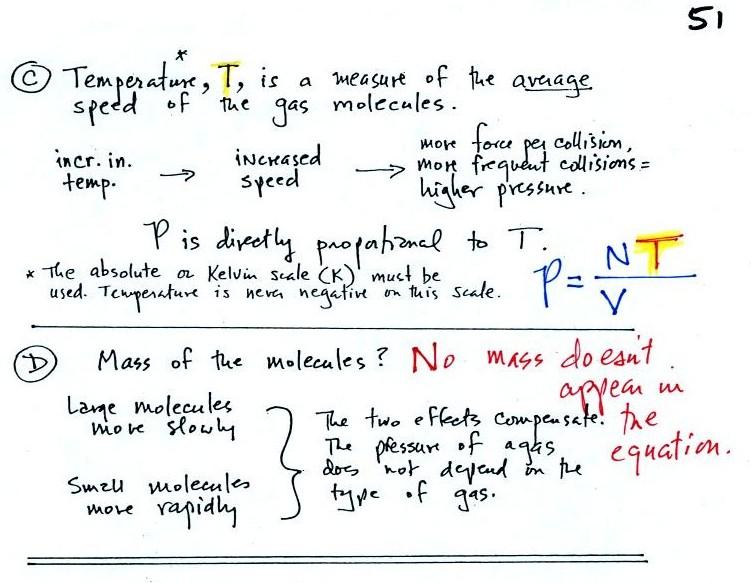 51
*
Ⓒ Temperature, T, is a measure of the average
speed of the gas molecules.
incr. in. temp. → increased speed → more force per collision, more frequent collisions = higher pressure.
P is directly proportional to T.
* The absolute or Kelvin scale (K) must be
used. Temperature is never negative on this scale.
P = NT / V
Ⓓ Mass of the molecules? No mass doesn't appear in the equation.
Large molecules
move slowly
Small molecules
move rapidly
The two effects compensate.
The pressure of a gas
does not depend on the
type of gas.